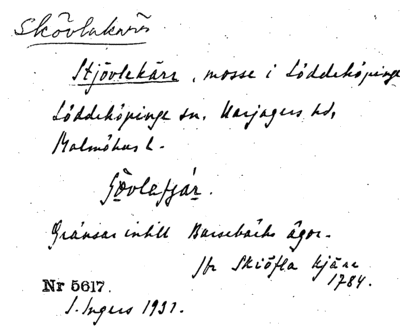 Skövlakärr
Stjövlekärr, mosse i Löddeköpinge
Löddeköpinge sn, Harjagers hd,
Malmöhus l.
Gränsar intill Barsebäcks ägor.
Jfr Skiöfla Kjärr
1784.
Nr 5617.
I. Ingers 1931.